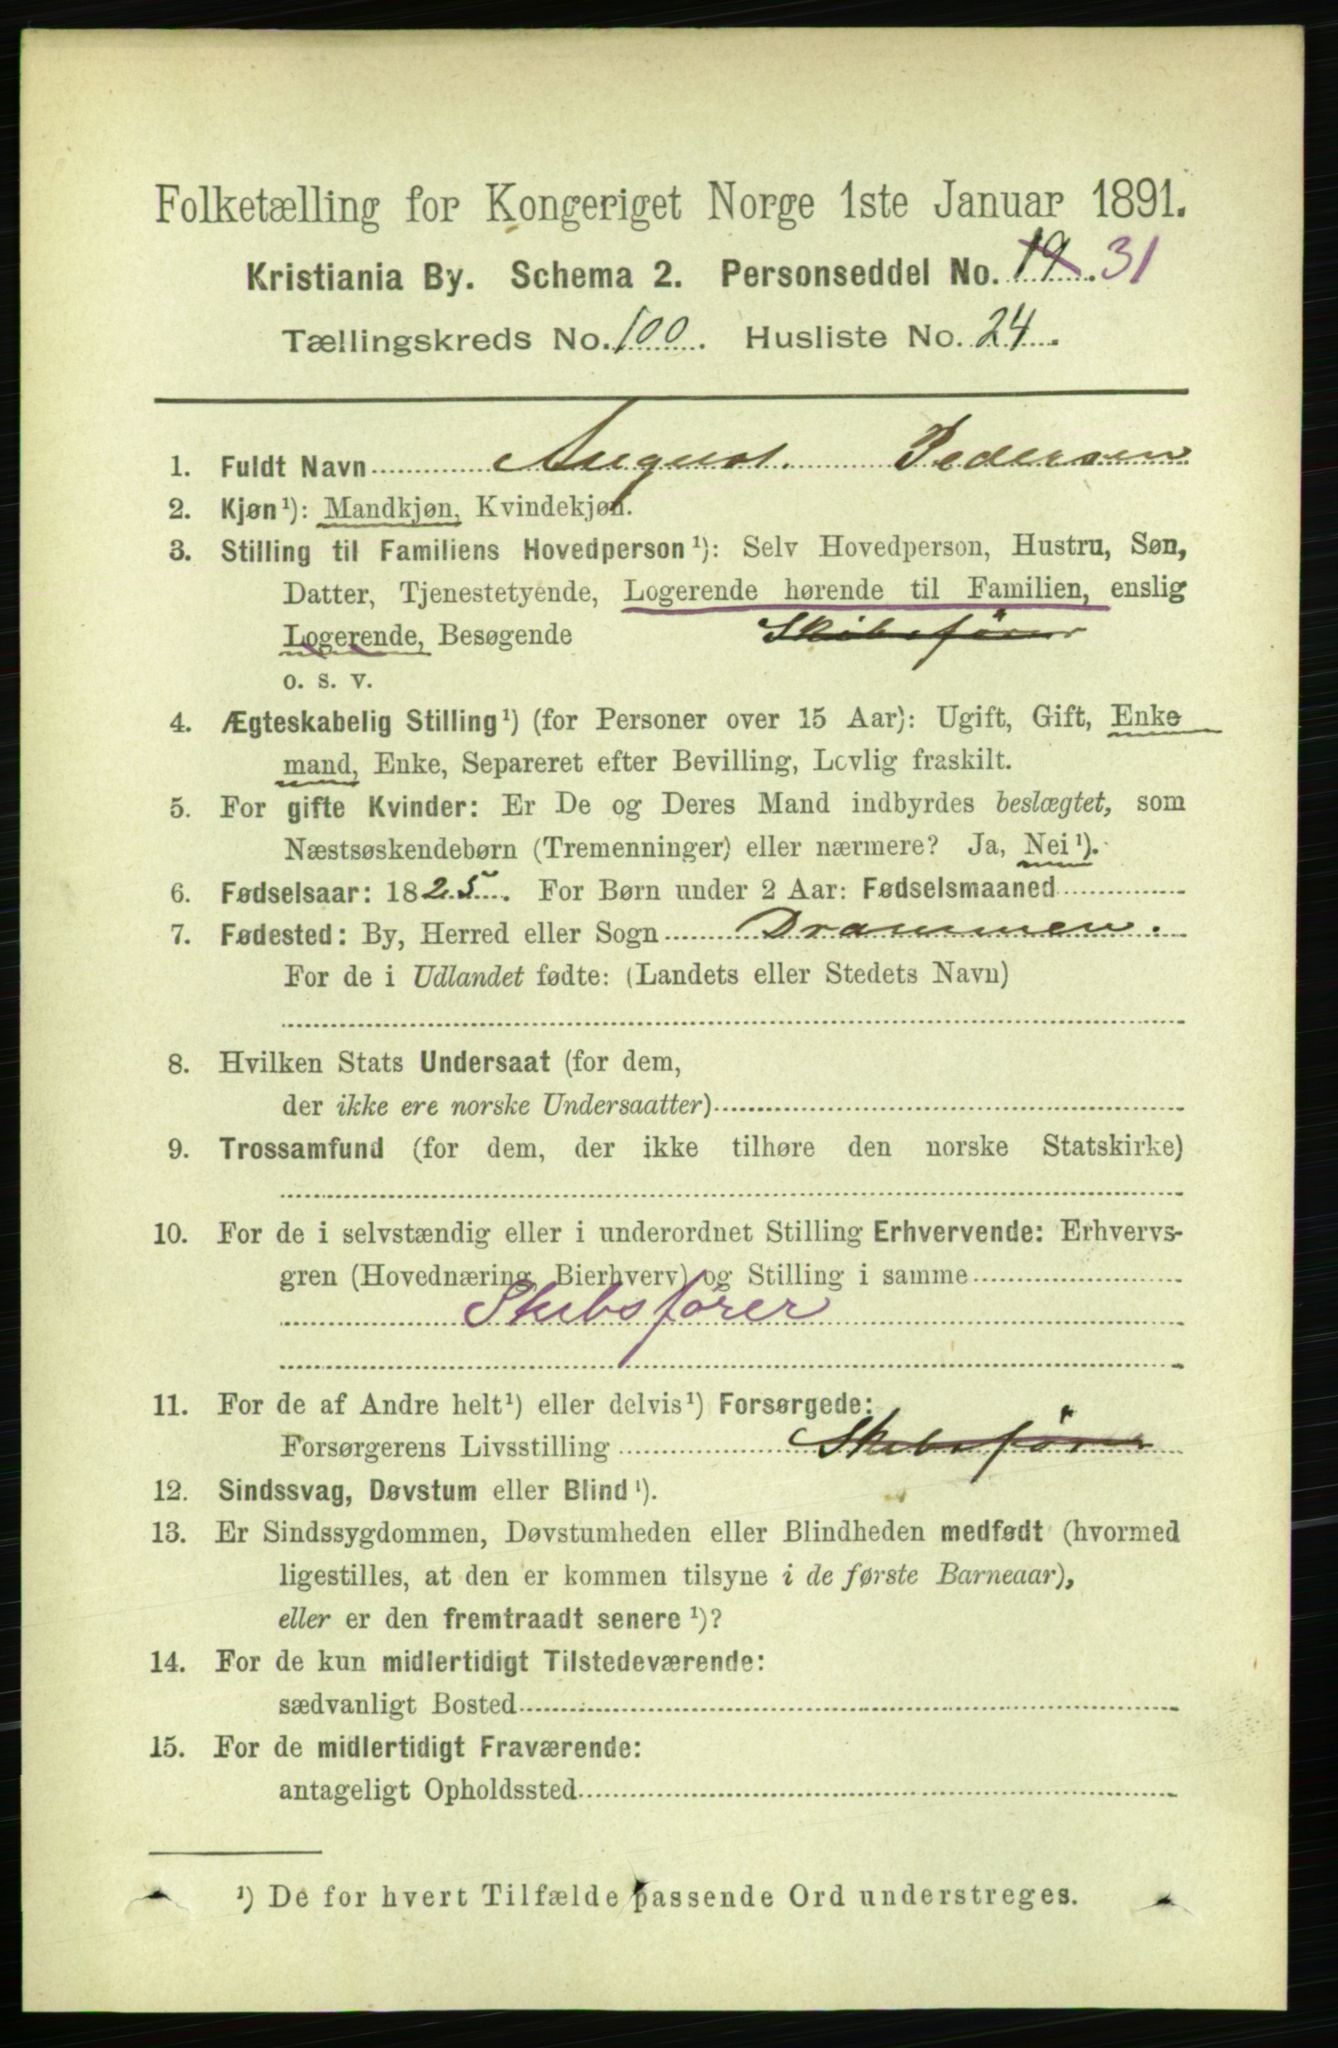 Folketælling for Kongeriget Norge 1ste Januar 1891.
Kristiania By. Schema 2. Personseddel No. 19 31
Tællingskreds No. 100. Husliste No. 24.
1. Fuldt Navn August Pedersen
2. Kjøn¹): Mandkjøn, Kvindekjøn.
3. Stilling til Familiens Hovedperson¹): Selv Hovedperson, Hustru, Søn,
Datter, Tjenestetyende, Logerende hørende til Familien, enslig
Logerende, Besøgende Skibsfører
o. s. v.
4. Ægteskabelig Stilling¹) (for Personer over 15 Aar): Ugift, Gift, Enke
mand, Enke, Separeret efter Bevilling, Lovlig fraskilt.
5. For gifte Kvinder: Er De og Deres Mand indbyrdes beslægtet, som
Næstsøskendebørn (Tremenninger) eller nærmere? Ja, Nei¹).
6. Fødselsaar: 1825. For Børn under 2 Aar: Fødselsmaaned
7. Fødested: By, Herred eller Sogn Drammen.
For de i Udlandet fødte: (Landets eller Stedets Navn)
8. Hvilken Stats Undersaat (for dem,
der ikke ere norske Undersaatter)
9. Trossamfund (for dem, der ikke tilhøre den norske Statskirke)
10. For de i selvstændig eller i underordnet Stilling Erhvervende: Erhvervs-
gren (Hovednæring, Bierhverv) og Stilling i samme
Skibsfører
11. For de af Andre helt¹) eller delvis¹) Forsørgede:
Forsørgerens Livsstilling Skibsfører
12. Sindssvag, Døvstum eller Blind¹).
13. Er Sindssygdommen, Døvstumheden eller Blindheden medfødt (hvormed
ligestilles, at den er kommen tilsyne i de første Barneaar),
eller er den fremtraadt senere¹)?
14. For de kun midlertidigt Tilstedeværende:
sædvanligt Bosted
15. For de midlertidigt Fraværende:
antageligt Opholdssted
¹) De for hvert Tilfælde passende Ord understreges.